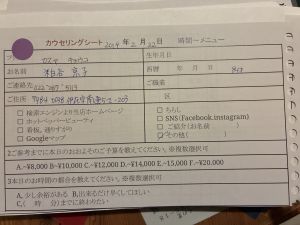 カウセリングシート 2019年2月22日 時間〜メニュー
カスヤ キョウコ
生年月日
お名前 粕谷 京子
西暦 年 月 日
ご連絡先
ご職業
ご住所
□ 検索エンジンより当店ホームページ
□ ホットペッパービューティ
□ 看板、通りすがり
□ Googleマップ
□ ちらし
□ SNS(Facebook,instagram)
□ ご紹介(お名前
その他(
2ご参考までに本日のおおよそのご予算を教えてください。※複数選択可
A.~¥8,000 B~¥10,000 C.~¥12,000 D.~¥14,000 E.~15,000 F.~¥20,000
3本日のお時間の都合を教えてください。※複数選択可
A, 少し余裕がある B,出来るだけ早くしてほしい
C,( 時 分)までに終わりたい